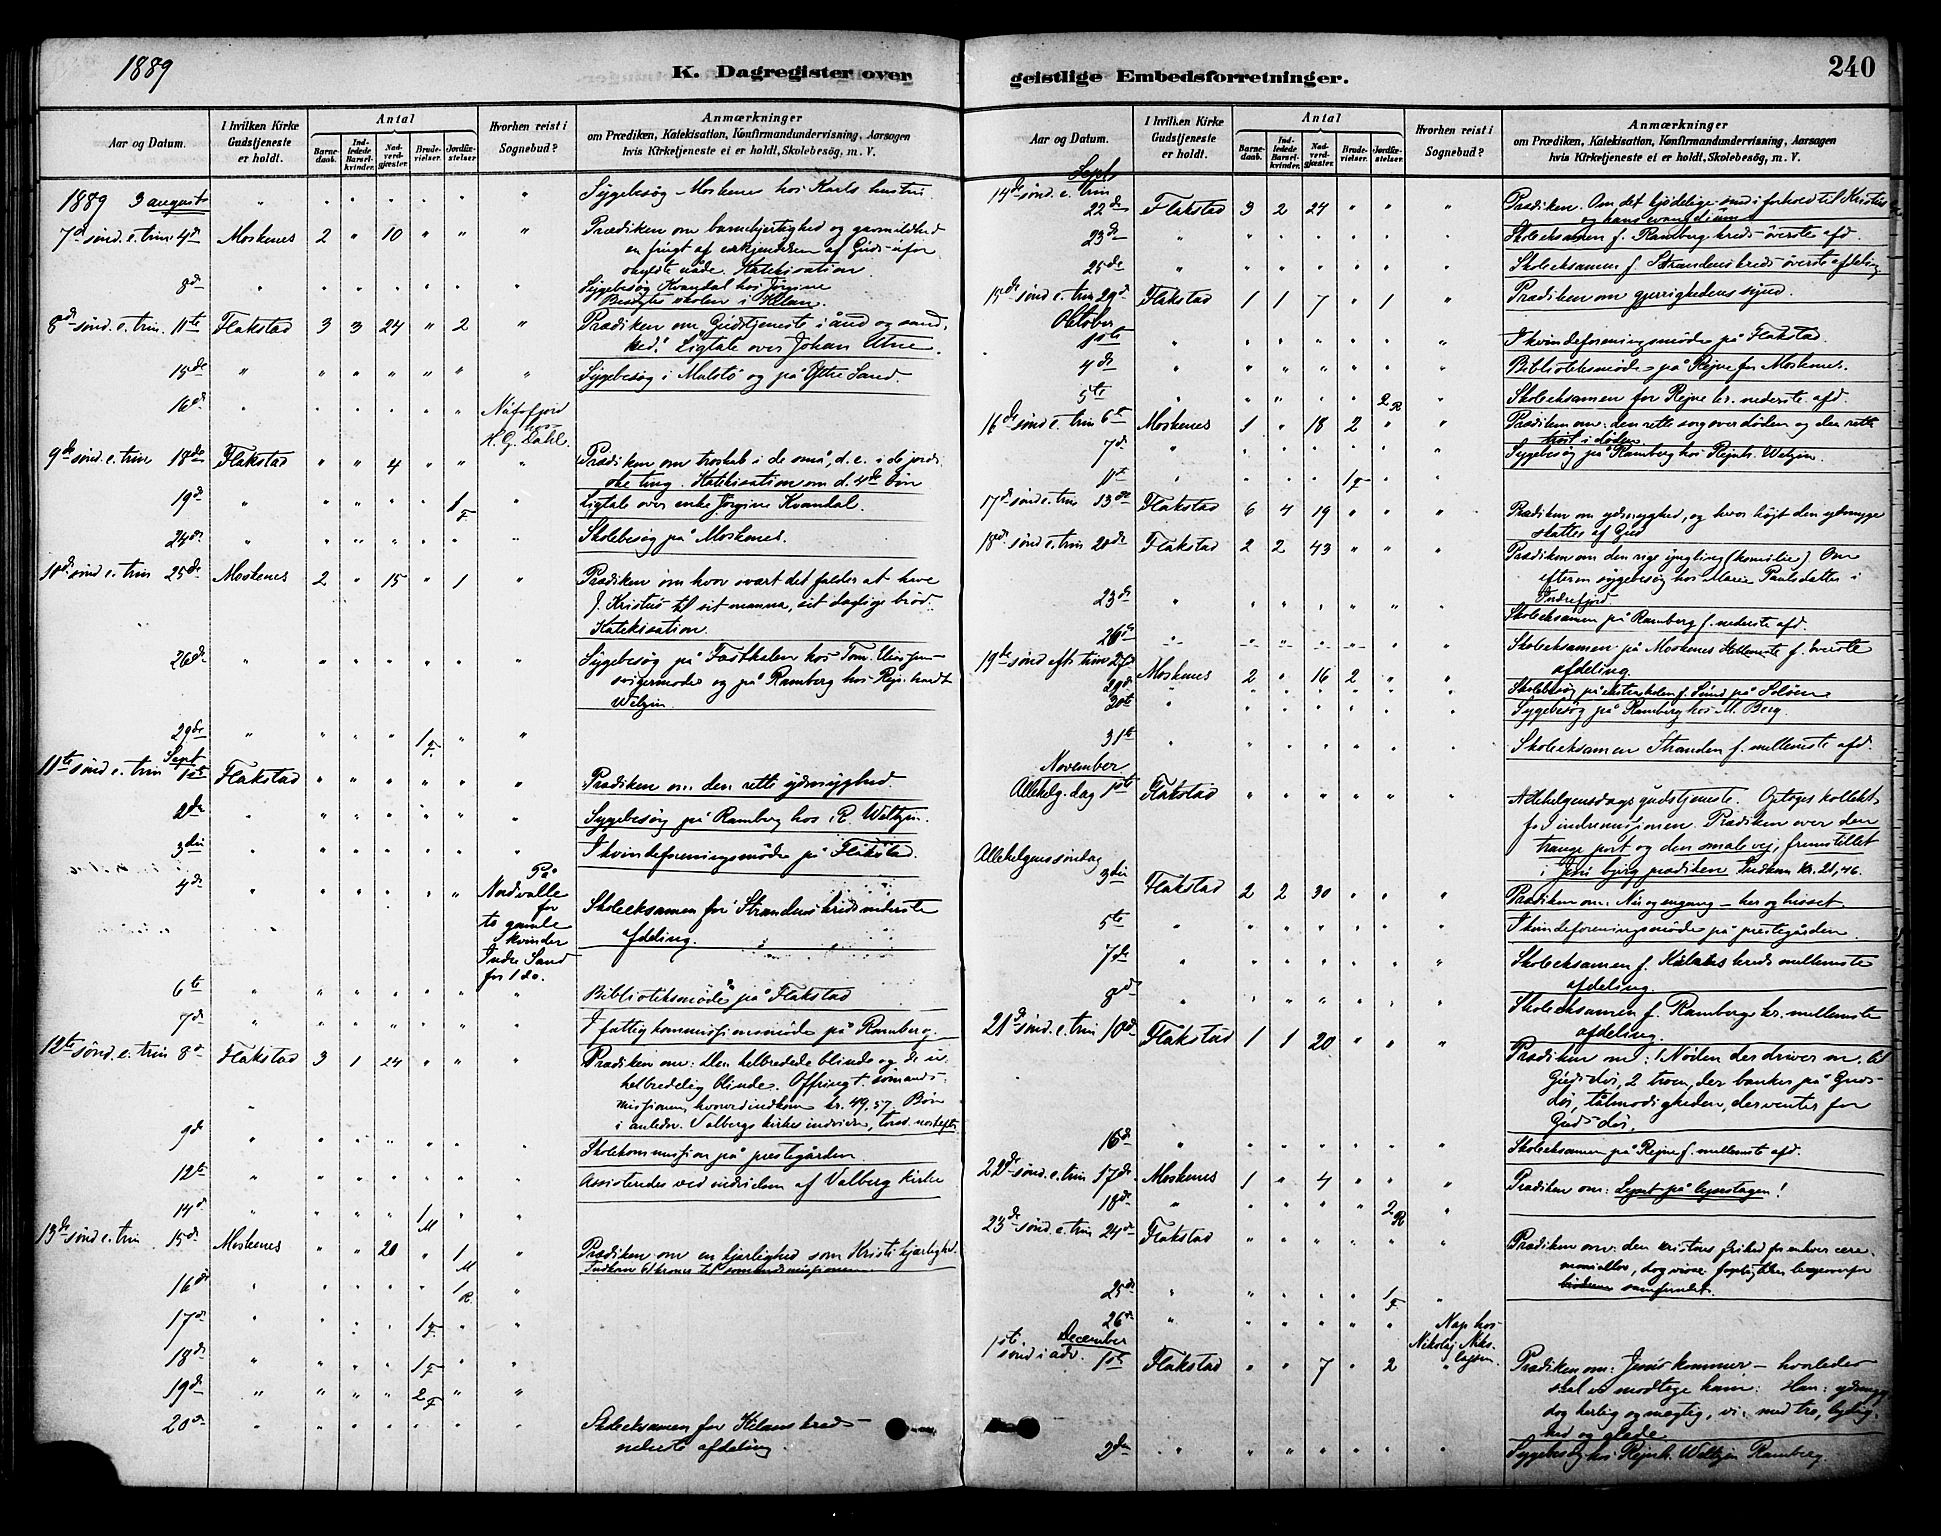 1889
K. Dagregister over
Aar og Datum.
I hvilken Kirke Gudstjeneste er holdt.
Antal
Barnedaab.
Indledede Barselkvinder.
Nadverdgjæster.
Brudevielser.
Jordfæstelser.
Hvorhen reist i Sognebud?
Anmærkninger
om Prædiken, Katekisation, Konfirmandundervisning, Aarsagen
hvis Kirketjeneste ei er holdt, Skolebesög, m. V.
1889 3 august " " " " " " " Sygebesøg Moskenes hos Karls hustru
7de sønd. e. trin 4de Moskenes 2 " 10 " " " Prædiken om barmhjertighed og gavmildhed
en frugt af erkjendelsen af Guds ufor
skyldte nåde. Katekisation.
8de " " " " " " " Sygebesøg Kvandal hos Jørgine
Besøgtes skolen i Kilan.
8de sønd. e. trin. 11te Flakstad 3 3 24 " 2 " Prædiken om Gudstjeneste i ånd og sand.
hed. Ligtale over Johan Utne.
15de " " " " " " " Sygebesøg i og på Yttre Sand.
16de " " " " " " Nufsfjord
hos
H. G. Dahl.
9de sønd. e. trin 18de Flakstad " " 4 " " " Prædiken om troskab i de små, d. e. i de jordi
ske ting. Katekisation om d. 4de bøn
19de " " " " " 1 F. " Ligtale over enke Jørgine Kvandal.
24de " " " " " " " Skolebesøg på Moskenes.
10de sønd e. trin 25de Moskenes 2 " 15 " 1 " Prædiken om hvor svært det falder at have
J. Kristus til sit manna, sit daglige brød.
Katekisation.
26de " " " " " " " Sygebesøg på hos Tom.
svigermoder og på Ramberg hos Rejnhardt
Welzin.
29de " " " " 1 F. " "
11te sønd. e. trin Sept 1ste Flakstad " " " " " " Prædiken om den rette ydmyghed.
2den " " " " " " " Sygebesøg på Ramberg hos R. Weltzin.
3die " " " " " " " I kvindeforeningsmøde på Flakstad.
4de " " " " " " På
Nordvalle
for
to gamle
kvinder
Indre Sand
for 1 do.
Skoleeksamen for Strandens kreds nederste
afdeling.
6te " " " " " " " Biblioteksmøde på Flakstad
7de " " " " " " " I fattigkommissionsmøde på Ramberg.
12te sønd. e. trin 8de Flakstad 3 1 24 " " " Prædiken om: Den helbredede blinde og de u
helbredelig blinde. Offringt. sømands-
missionen, hvorved indkom kr. 49,57. Bøn
i anledn. Valbergs kirkes indvielse,
9de " " " " " " " Skolekommission på prestegården.
12te " " " " " " " Assisteredes ved indvielsen af Valberg kirke
14de " " " " 1 M " "
13de sønd. e. trin 15de Moskenes " " 20 " 1 M " Prædiken om en kjærlighed som Kristi kjærlighed.
Indkom 61 kroner til sømandsmissionen.
16de " " " " " 1 R. "
17de " " " " 1 F. " "
18de " " " " 1 F. " "
19de " " " " 2 F. " "
20de " " " " " " " Skoleeksamen for Kilans kreds
nederste afdeling.
geistlige Embedsforretninger.
240
Aar og Datum.
I hvilken Kirke Gudstjeneste er holdt.
Antal
Barnedaab.
Indledede Barselkvinder.
Nadverdgjæster.
Brudevielser.
Jordfæstelser.
Hvorhen reist i Sognebud?
Anmærkninger
om Prædiken, Katekisation, Konfirmandundervisning, Aarsagen
hvis Kirketjeneste ei er holdt, Skolebesög, m. V.
Sept
14de sønd. e. trin 22de Flakstad 3 2 24 " " " Prædiken. Om det kjødelige sind i forhold til Kristus
og hans evangelium
23de " " " " " " " Skoleeksamen f. Ramberg kreds øverste afd.
25de " " " " " " " Skoleeksamen f. Strandens kreds øverste afdeling
15de sønd e. trin 29de Flakstad 1 1 7 " 1 " Prædiken om gjerrighedens synd.
Oktober
1ste " " " " " " " I kvindeforeningsmøde på Flakstad.
4de " " " " " " " Biblioteksmøde på Rejne for Moskenes.
5te " " " " " 2 R " Skoleeksamen for Rejne kr. nederste afd.
16de sønd e. trin 6te Moskenes 1 " 18 2 " " Prædiken om: den rette sorg over døden og den rette
trøst i døden
7de " " " " " " " Sygebesøg på Ramberg hos Rejnh. Weltzin.
11te " " " " 1 F " "
17de sønd e. trin 13de Flakstad 6 4 19 " " " Prædiken om ydmyghed, og hvor højt den ydmyge
skattes af Gud
18de sønd. e. trin 20de Flakstad 2 2 43 " " " Prædiken om den rige yngling (homilie). Om
efterm sygebesøg hos Marie Paulsdatter i
Indrefjord
23de " " " " " " " Skoleeksamen på Ramberg f. nederste afd.
26de " " " " " " " Skoleeksamen på Moskenes f. øverste
afdeling.
19de sønd eft. trin 27de Moskenes 2 " 16 2 " "
29de " " " " " " " Skolebesøg på f. Sund på
30te " " " " " " " Sygebesøg på Ramberg hos M. Berg.
31te " " " " " " " Skoleeksamen Stranden f. mellemste afd.
November
Allehelg. dag 1ste Flakstad " " " " " " Allehelgensdagsgudstjeneste. Optoges kollekt
for indremissionen. Prædiken over den
trange port og den smale vej, fremstillet
i Jesu bjergprædiken. Indkom kr. 21,46.
Allehelgenssøndag 3die Flakstad 2 2 30 " " " Prædiken om: Nu og engang – her og hisset.
5te " " " " " " " I kvindeforeningsmøde på prestegården.
7de " " " " " " " Skoleeksamen f. Kilans kreds mellemste
afdeling.
8de " " " " " " " Skoleeksamen f. Rambergs kr. mellemste
afdeling.
21de sønd. e. trin 10de Flakstad 1 1 20 " " " Prædiken om: 1 Nøden der driver om til
Guds dør, 2 troen, der banker på Guds-
dør, tålmodigheden, der venter for
Guds dør.
16de " " " " " " " Skoleeksamen på Rejne f. mellemste afd.
22de sønd. e. trin 17de Moskenes 1 " 4 " " " Prædiken om: på !
18de " " " " " 2 R "
23de sønd. e. trin 24de Flakstad " " " " " " Prædiken om: den kristnes frihed for enhver cere-
moniellov, dog visse
samfundet.
25de " " " " " 1 F "
26de " " " " " " Nap hos
Nikolaj Niko-
lajsen.
1ste sønd i adv. December 1ste Flakstad " " 7 " 2 " Prædiken om: Jesus kommer – hvorledes
skal vi modtage ham: Han: ydmyg
dog herlig og mægtig, vi: med tro,
hed og glæde.
2den " " " " " " " Sygebesøg hos Rejnh. Weltzin Ramberg.